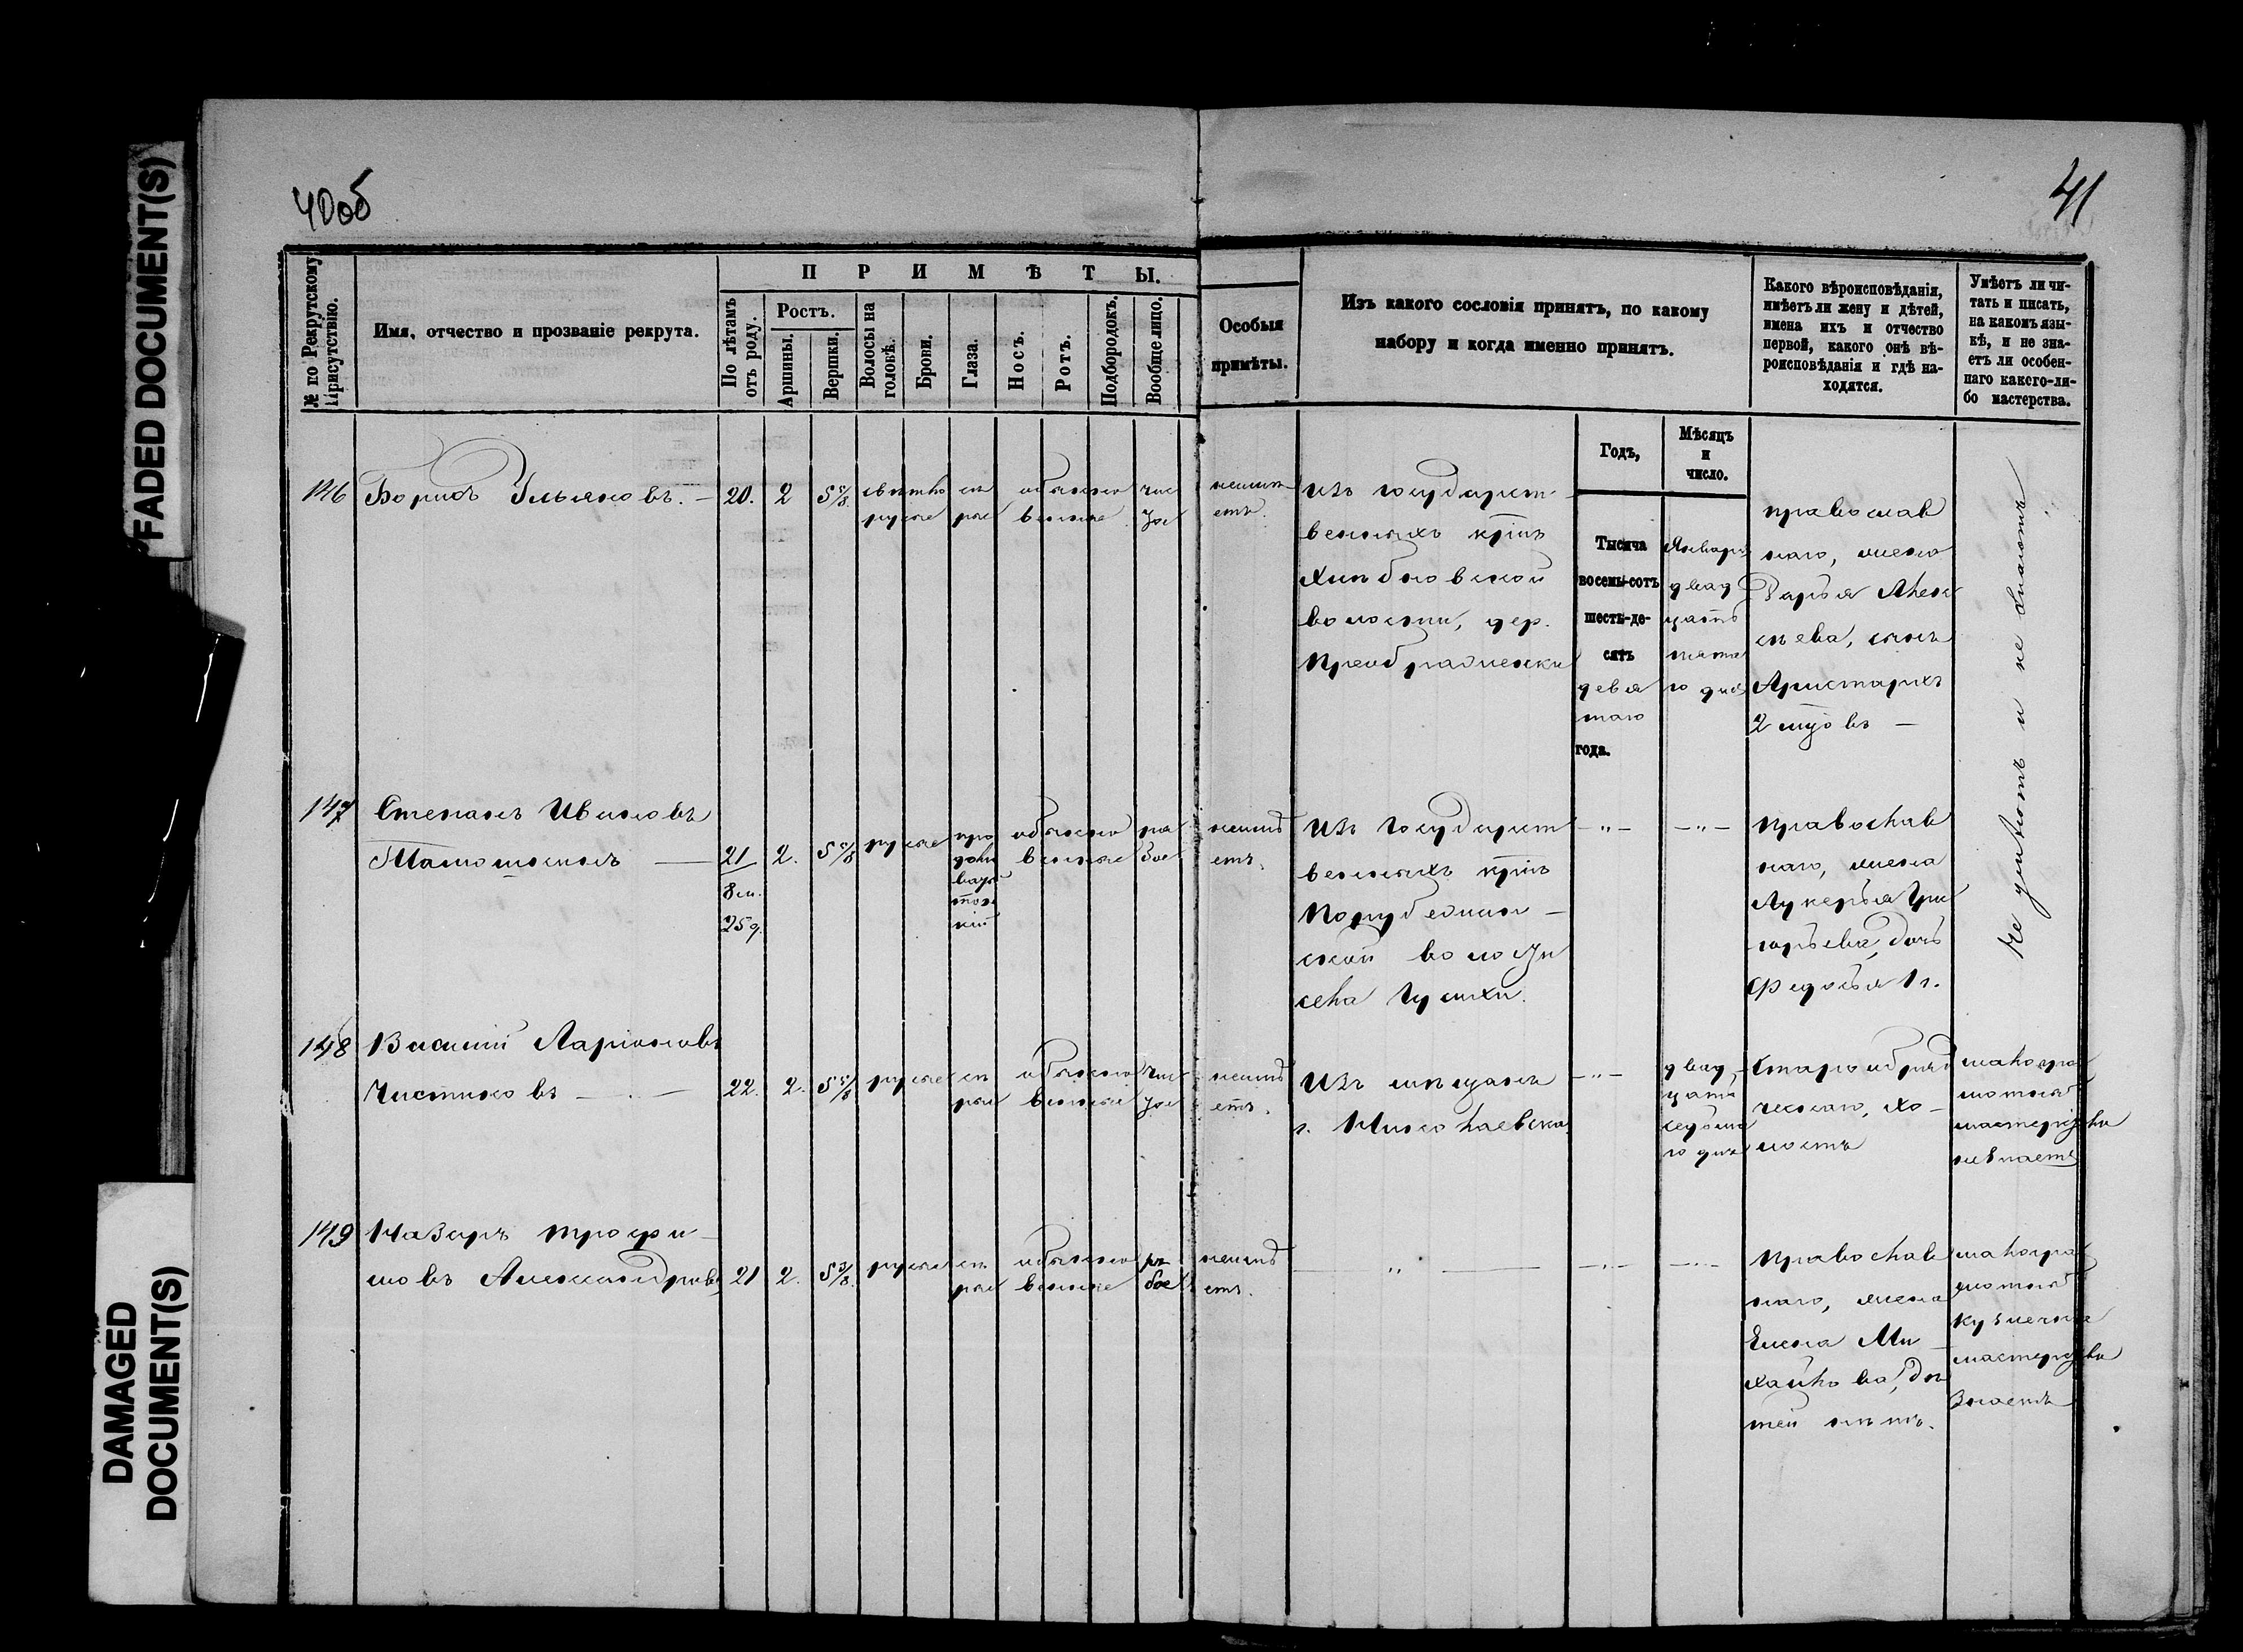 FADED DOCUMENT(S)
DAMAGED
DOCUMENT(S)
40об
41
№ по Рекрутскому
Присутствію.
Имя, отчество и прозваніе рекрута.
ПРИМѢТЫ.
По лѣтамъ
отъ роду.
Ростъ.
Аршины.
Вершки.
Волосы на
головѣ.
Брови.
Глаза.
Носъ.
Ротъ.
Подбородокъ.
Вообще лицо.
Особыя
примѣты.
Изъ какого сословія принятъ, по какому
набору и когда именно принятъ.
Какого вѣроисповѣданія,
имѣетъ ли жену и дѣтей,
имена ихъ и отчество
первой, какого онѣ вѣ-
роисповѣданія и гдѣ на-
ходятся.
Умѣетъ ли чи-
тать и писать,
на какомъ язы-
кѣ, и не зна-
етъ ли особен-
наго какого-ли-
бо мастерства.
Годъ,
Мѣсяцъ
и
число.
146
Борисъ Ульяновъ. —
20.
2
5 5/8
свѣтло
русые
сѣ
рые
обыкно
венные
чис
тое
неимѣ
етъ.
Изъ государст
венныхъ кр‍інъ
Хлѣбновской
волости, дер.
Преображенки
Тысяча
восемь-сотъ
шесть-де-
сятъ
девя
таго
года.
Января
двад
цать
пята
го дня
православ
наго, жена
Дарья Алек
сѣева, сынъ
Аристархъ
2 годовъ —
не читать и не знаетъ
147
Степанъ Ивановъ
21
8 м.
25 д.
2.
5 5/8
русые
обыкно
венные
ря
бое
неимѣ
етъ.
Изъ Государст
венныхъ кр‍інъ
Порубежин
ской волости
села Гусихи.
— „ —
— „ —
Православ
наго, жена
Лукерья Гри
горьева, дочь
Федосья 1 г.
148
Василій Ларіоновъ
Чистяковъ —
22.
2.
5 5/8
русые
сѣ
рые
обыкно
венные
чис
тое
неимѣ
етъ.
Изъ мѣщанъ
г. Николаевска
— „ —
двад
цать
седьма
го дня
Старообряд
ческаго, хо-
лостъ
малогра
мотный
мастерства
незнаетъ
149
Назаръ Трофи-
мовъ Александровъ
21
2.
5 3/8
русые
сѣ
рые
обыкно
венные
ря
бое
неимѣ
етъ.
— „ —
— „ —
— „ —
Православ
наго, жена
Елена Ми
хайлова, дѣ
тей нѣтъ.
малогра
мотный
кузнечна
мастерства
знаетъ